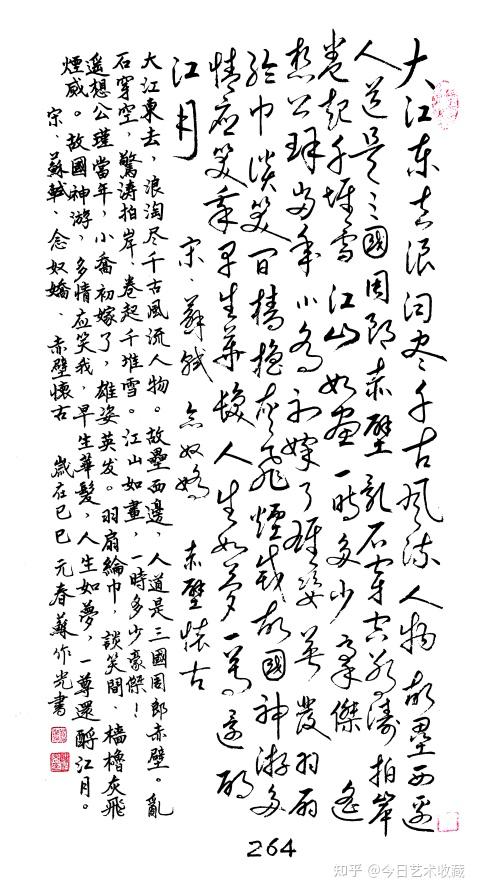 大江东去浪淘尽千古风流人物故垒西边
人道是三國周郎赤壁乱石穿空惊涛拍岸
卷起千堆雪江山如画一时多少豪傑遥
想公瑾当年小乔初嫁了雄姿英發羽扇
纶巾谈笑间樯橹灰飛煙烕故國神游多
情应笑我早生华髮人生如夢一尊还酹
江月 宋、蘇軾 念奴嬌 赤壁懷古
大江東去，浪淘尽千古風流人物。故壘西邊，人道是三國周郎赤壁。亂
石穿空，驚涛拍岸，卷起千堆雪。江山如畫，一時多少豪傑！
遥想公瑾當年，小喬初嫁了，雄姿英发。羽扇綸巾，談笑間、檣櫓灰飛
煙烕。故國神游，多情应笑我，早生華髮，人生如夢，一尊還酹江月。
宋、蘇軾、念奴嬌、赤壁懷古 歲在己巳元春蘇作光書
264
知乎 @今日艺术收藏